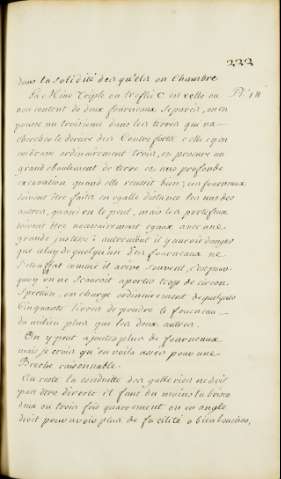 222
dans la solidité des qu'elle on Chambre
La Mine Triple ou Treffle C. est celle ou Pl. 18
non content de deux fourneaux separez, on en
pousse un troisieme dans les terres qui va
chercher le derriere des Contreforts: celle cy en
embrasse ordinairement trois, et procure un
grand eboulement de terre et une profonde
excavation quand elle reussit bien; ces fourneaux
doivent être faits en egalle distance les uns des
autres, quand on le peut, mais les portefeux
doivent être necessairement egaux avec une
grande justesse: autrement il y auroit danger
que celuy de quelqu'un des fourneaux ne
s'etouffat comme il arrive souvent, c'est pour
quoy on ne scauroit aporter trop de circon
spection, on charge ordinairement de quelques
Cinquante livres de poudre le fourneau
du milieu plus que les deux autres.
On y peut ajouter plus de fourneaux
mais je crois qu'en voila assés pour une
Breche raisonnable.
Au reste la conduitte des galleries ne doit
pas être directe il faut du moins la briser
deux ou trois fois quarrement ou en angle
droit pour avoir plus de facilité a bien boucher,